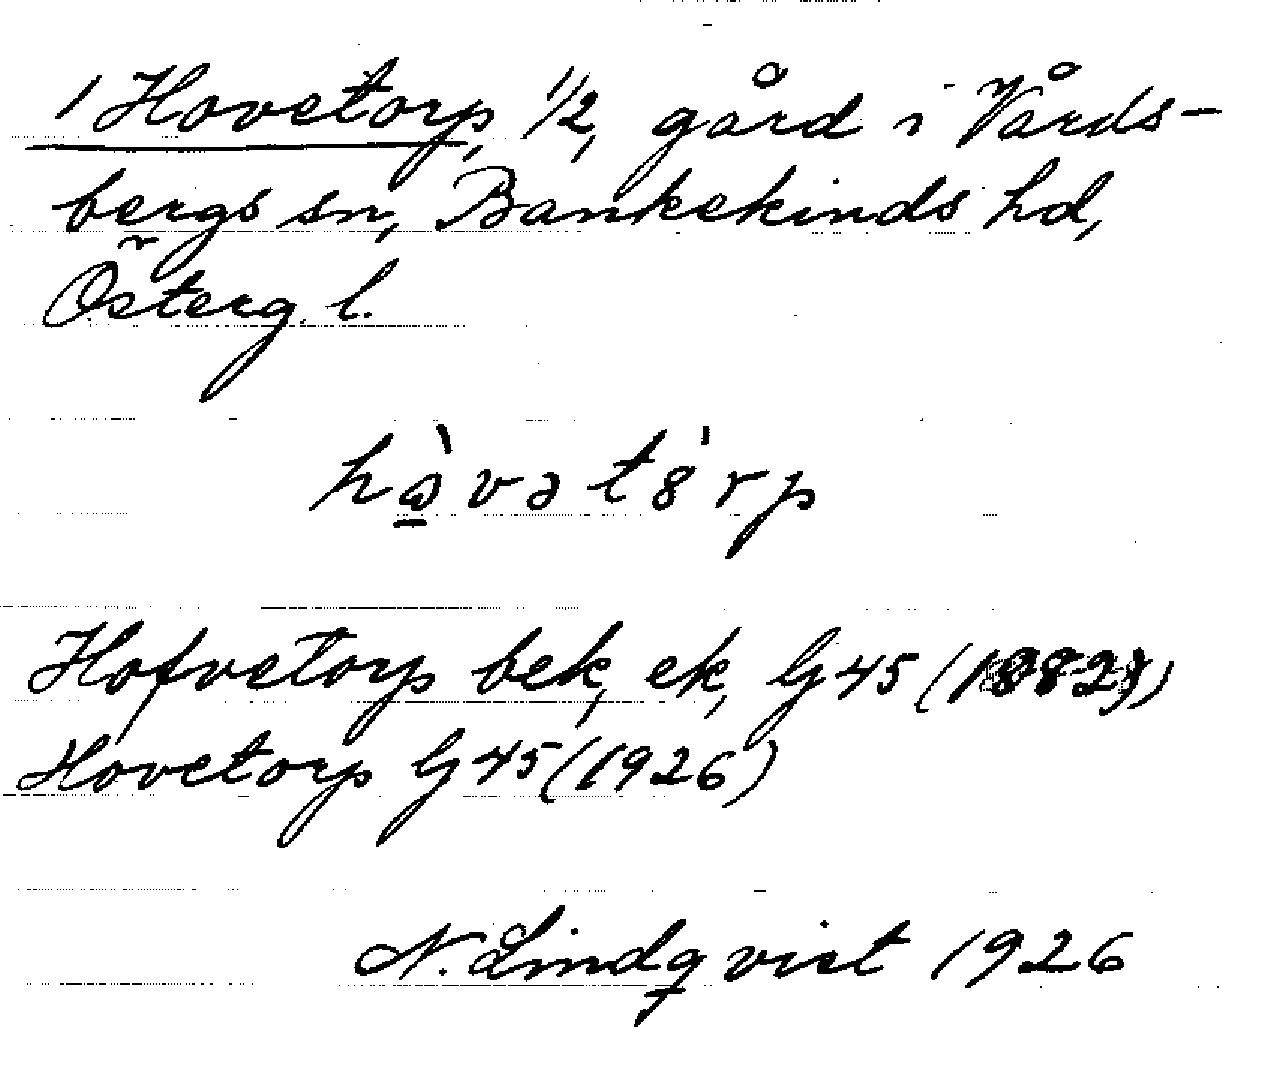 1 Hovetorp, 1/2, gård i Vårds-
bergs sn, Bankekinds hd,
Österg. l.
hàvətȯ́rp
Hofvetorp bek, ek, G 45 (1882)
Hovetorp G 45 (1926)
N. Lindqvist 1926